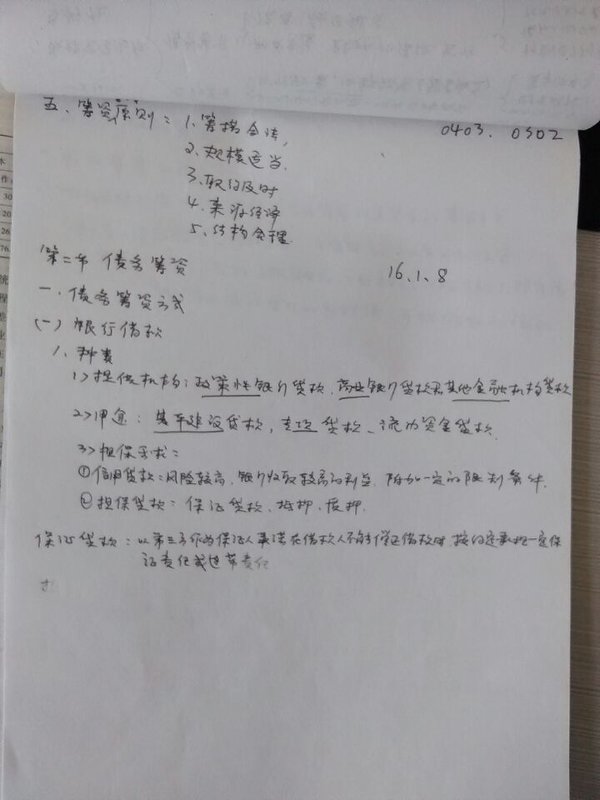 五、筹资原则：1、筹措合法，
0403. 0302
2、规模适当.
3、取得及时
4、来源经济
5、结构合理
第二节 债务筹资
16.1.8
一、债务筹资方式
(一) 银行借款
1、种类
1>提供机构：政策性银行贷款、商业银行贷款和其他金融机构贷款
2>用途：基本建设贷款，专项贷款、流动资金贷款.
3>担保要求：
①信用贷款：风险较高，银行收取较高的利息，附加一定的限制条件.
②担保贷款：保证贷款、抵押、质押.
保证贷款：以第三方作为保证人承诺在借款人不能偿还借款时 按约定承担一定保
证责任或连带责任